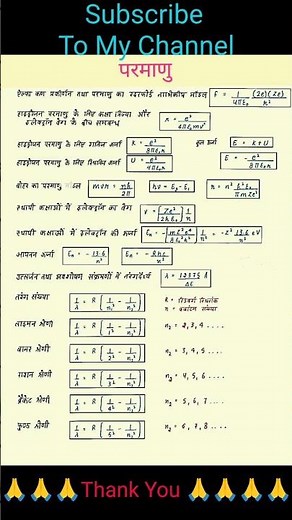 Subscribe
To My Channel
परमाणु
ऐल्फा कण प्रकीर्णन तथा परमाणु का रदरफोर्ड नाभिकीय मॉडल F = 1/4πε₀ (2e)(Ze)/r²
हाइड्रोजन परमाणु के लिए कक्षा त्रिज्या और
इलेक्ट्रॉन वेग के बीच सम्बन्ध r = e²/4πε₀mv²
हाइड्रोजन परमाणु के लिए गतिज ऊर्जा K = e²/8πε₀r कुल ऊर्जा E = K+U
हाइड्रोजन परमाणु के लिए स्थितिज ऊर्जा U = -e²/4πε₀r E = -e²/8πε₀r
बोहर का परमाणु मॉडल mvr = nh/2π hν = E₂-E₁ r = n²h²ε₀/πmZe²
स्थायी कक्षाओं में इलेक्ट्रॉन का वेग V = [Ze²/2hε₀] 1/n
स्थायी कक्षाओं में इलेक्ट्रॉन की ऊर्जा Eₙ = -mZ²e⁴/8ε₀²h² 1/n² = -Z² 13.6/n² eV
आयनन ऊर्जा Eₙ = -13.6/n² Eₙ = -Rhc/n²
उत्सर्जन तथा अवशोषण संक्रमणों में तरंगदैर्ध्य λ = 12375/ΔE Å
तरंग संख्या 1/λ = R [1/n₁² - 1/n₂²] R = रिडबर्ग नियतांक
n =
लाइमन श्रेणी 1/λ = R [1/1² - 1/n₂²] n₂ = 2,3,4 ....
बामर श्रेणी 1/λ = R [1/2² - 1/n₂²] n₂ = 3,4,5 ....
पाशन श्रेणी 1/λ = R [1/3² - 1/n₂²] n₂ = 4,5,6 ....
ब्रैकेट श्रेणी 1/λ = R [1/4² - 1/n₂²] n₂ = 5,6,7 ....
फुण्ड श्रेणी 1/λ = R [1/5² - 1/n₂²] n₂ = 6,7,8 ....
🙏🙏🙏Thank You 🙏🙏🙏🙏